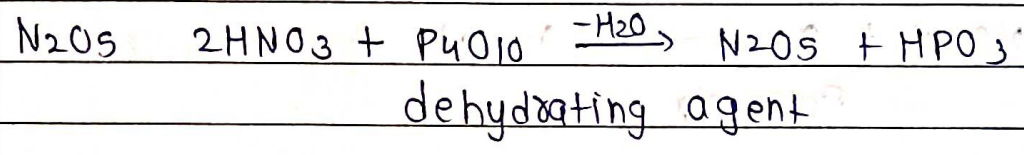 N2O5 2HNO3 + P4O10 -H2O→ N2O5 + HPO3
dehydrating agent